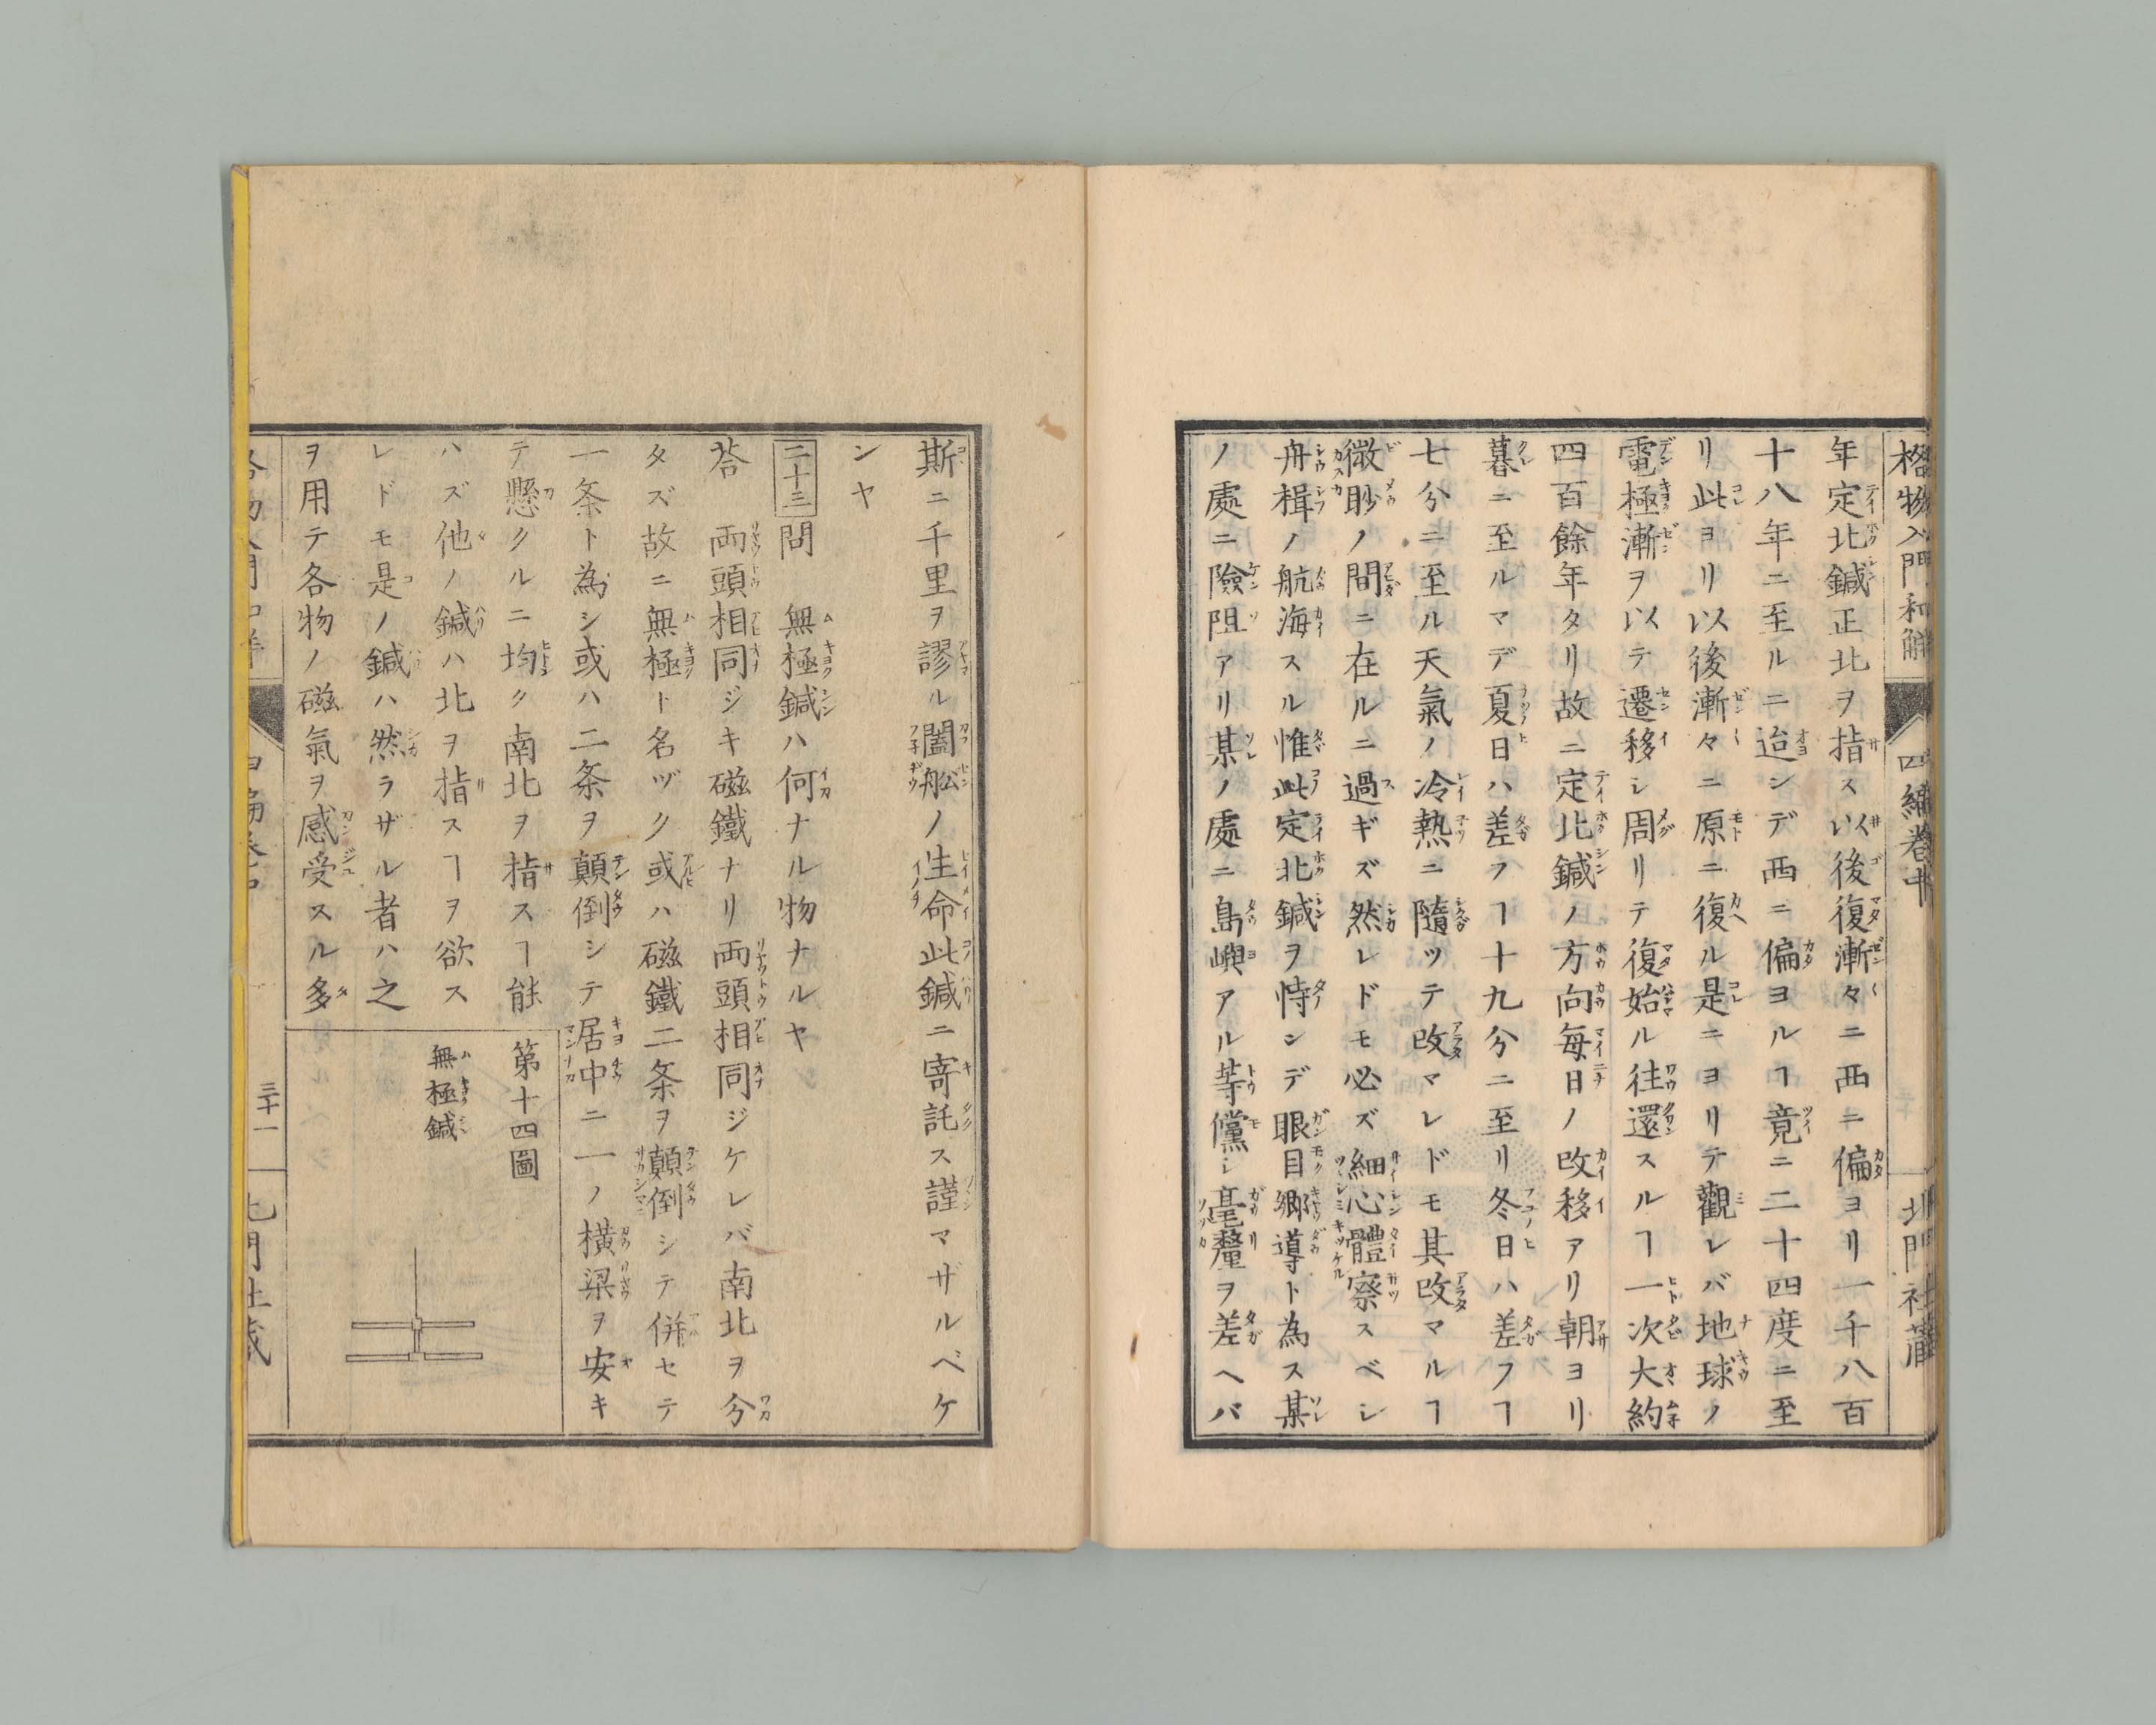 格物入門和解 四編卷中 北門社蔵
年定北鍼正北ヲ指ス以後復漸々ニ西ニ偏ヨリ一千八百
十八年ニ至ルニ迨ンデ西ニ偏ヨルヿ竟ニ二十四度ニ至
リ此ヨリ以後漸々ニ原ニ復ル是ニヨリテ觀レバ地球ノ
電極漸ヲ以テ遷移シ周リテ復始ル往還スルヿ一次大約
四百餘年タリ故ニ定北鍼ノ方向每日ノ改移アリ朝ヨリ
暮ニ至ルマデ夏日ハ差フヿ十九分ニ至リ冬日ハ差フヿ
七分ニ至ル天氣ノ冷熱ニ隨ツテ改マレドモ其改マルヿ
微眇ノ間ニ在ルニ過ギズ然レドモ必ズ細心體察スベシ
舟楫ノ航海スル惟此定北鍼ヲ恃ンデ眼目郷導ト為ス某
ノ處ニ險阻アリ某ノ處ニ島嶼アル等儻シ毫釐ヲ差ヘバ
斯ニ千里ヲ謬ル闔舩ノ生命此鍼ニ寄託ス謹マザルベケ
ンヤ
二十三 問 無極鍼ハ何ナル物ナルヤ
荅 両頭相同ジキ磁鐵ナリ両頭相同ジケレバ南北ヲ分
タズ故ニ無極ト名ヅク或ハ磁鐵二条ヲ顛倒シテ併セテ
一条ト為シ或ハ二条ヲ顛倒シテ居中ニ一ノ橫梁ヲ安キ
テ懸クルニ均ク南北ヲ指スヿ能
ハズ他ノ鍼ハ北ヲ指スヿヲ欲ス
レドモ是ノ鍼ハ然ラザル者ハ之
ヲ用テ各物ノ磁氣ヲ感受スル多
第十四圖
無極鍼
三十一